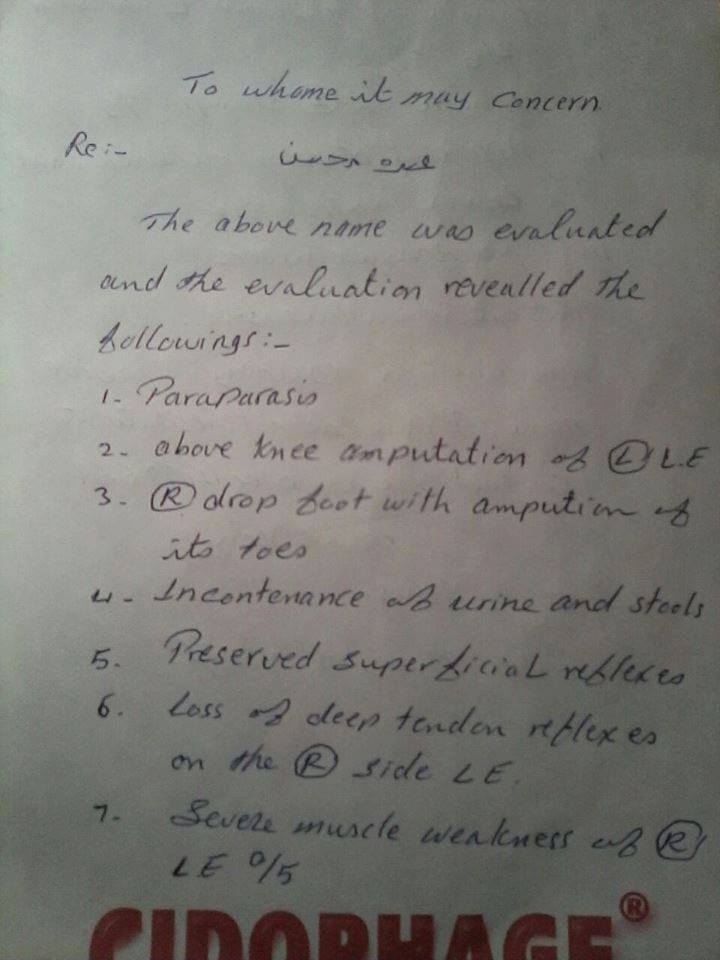 To whome it may concern
Re:-
The above name was evaluated
and the evaluation revealled the
followings:-
1- Paraparasis
2- above knee amputation of Ⓛ L.E
3- Ⓡ drop foot with ampution of
its toes
4- Incontenance of urine and stools
5. Preserved superficial reflexes
6. Loss of deep tendon reflexes
on the Ⓡ side LE.
7- Severe muscle weakness of Ⓡ
LE 0/5
CIDOPHAGE®